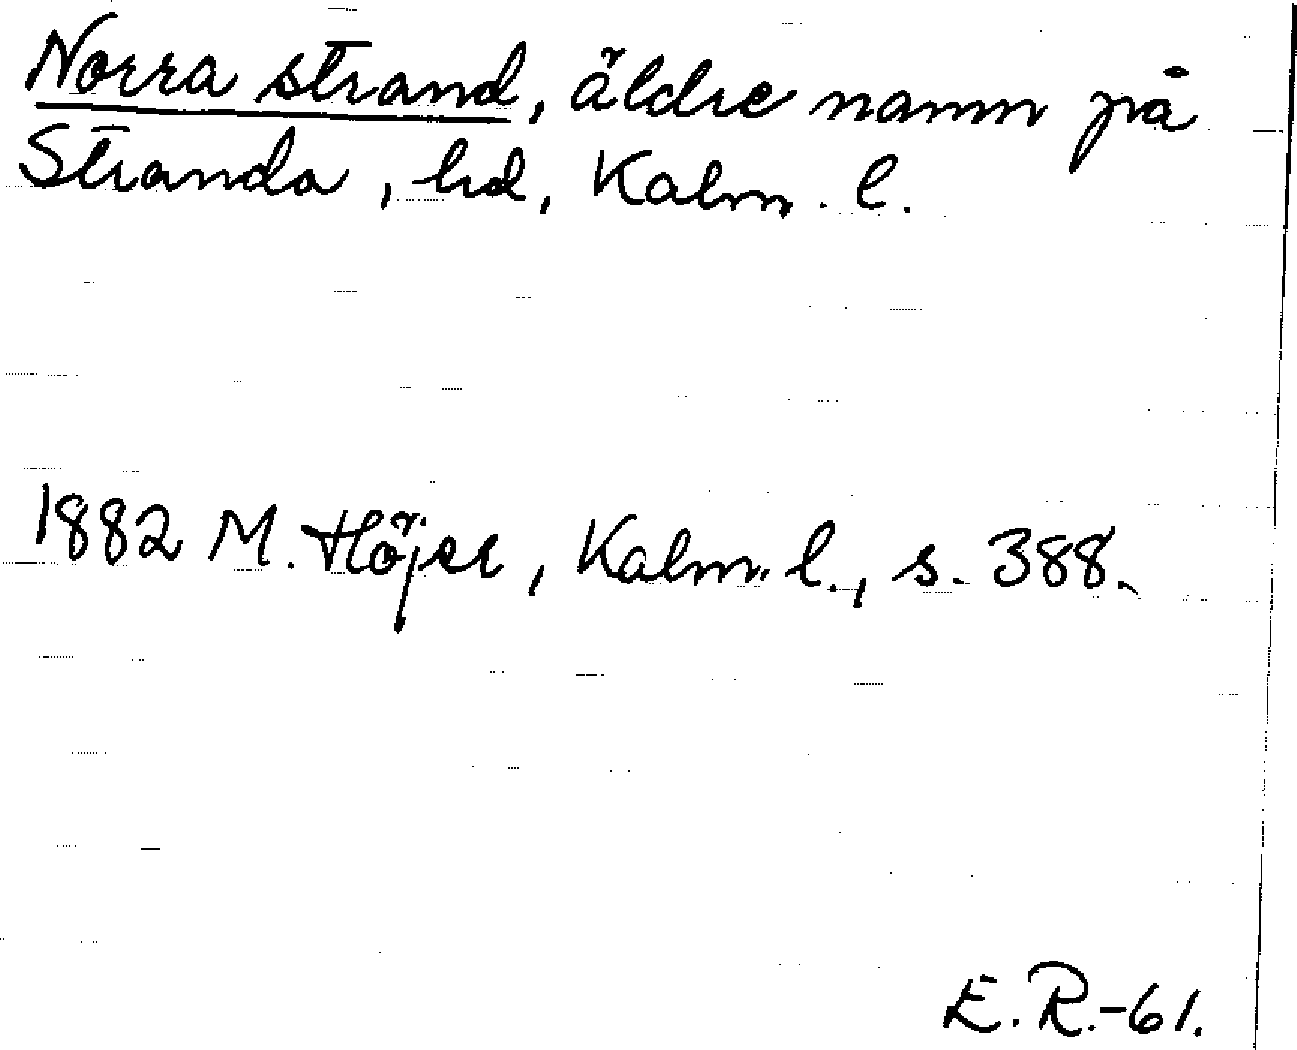 Norra strand, äldre namn på
Stranda, hd, Kalm. l.
1882 M. Höjer, Kalm. l., s. 388.
E. R.-61.